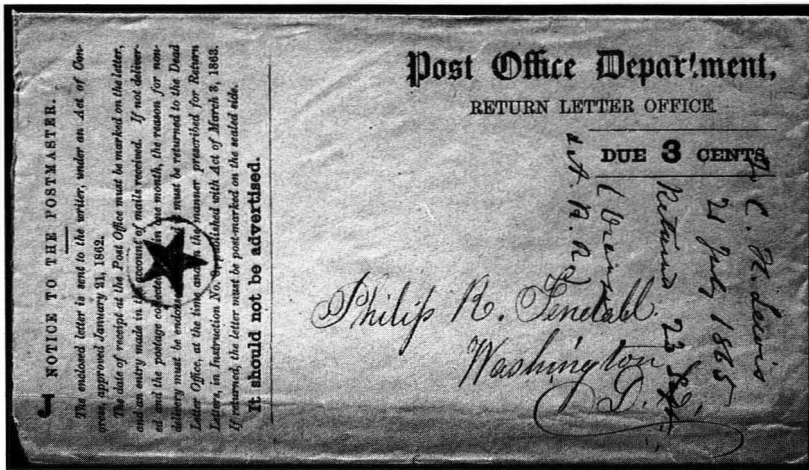 Post Office Department,
RETURN LETTER OFFICE
DUE 3 CENTS
Philip R. Fendall
Washington
D. C.
C. H. Lewis
21 July 1865
Returned 23 Sept
NOTICE TO THE POSTMASTER.
The enclosed letter is sent to the writer, under an Act of Con-
gress, approved January 21, 1862.
The date of receipt at the Post Office must be marked on the letter,
and an entry made in the account of mails received. If not deliver-
ed and the postage collected in one month, the reason for non-
delivery must be endorsed and must be returned to the Dead
Letter Office, at the time and in the manner prescribed for Return
Letters, in Instruction No. published with Act of March 3, 1863.
If returned, the letter must be post-marked on the sealed side.
It should not be advertised.